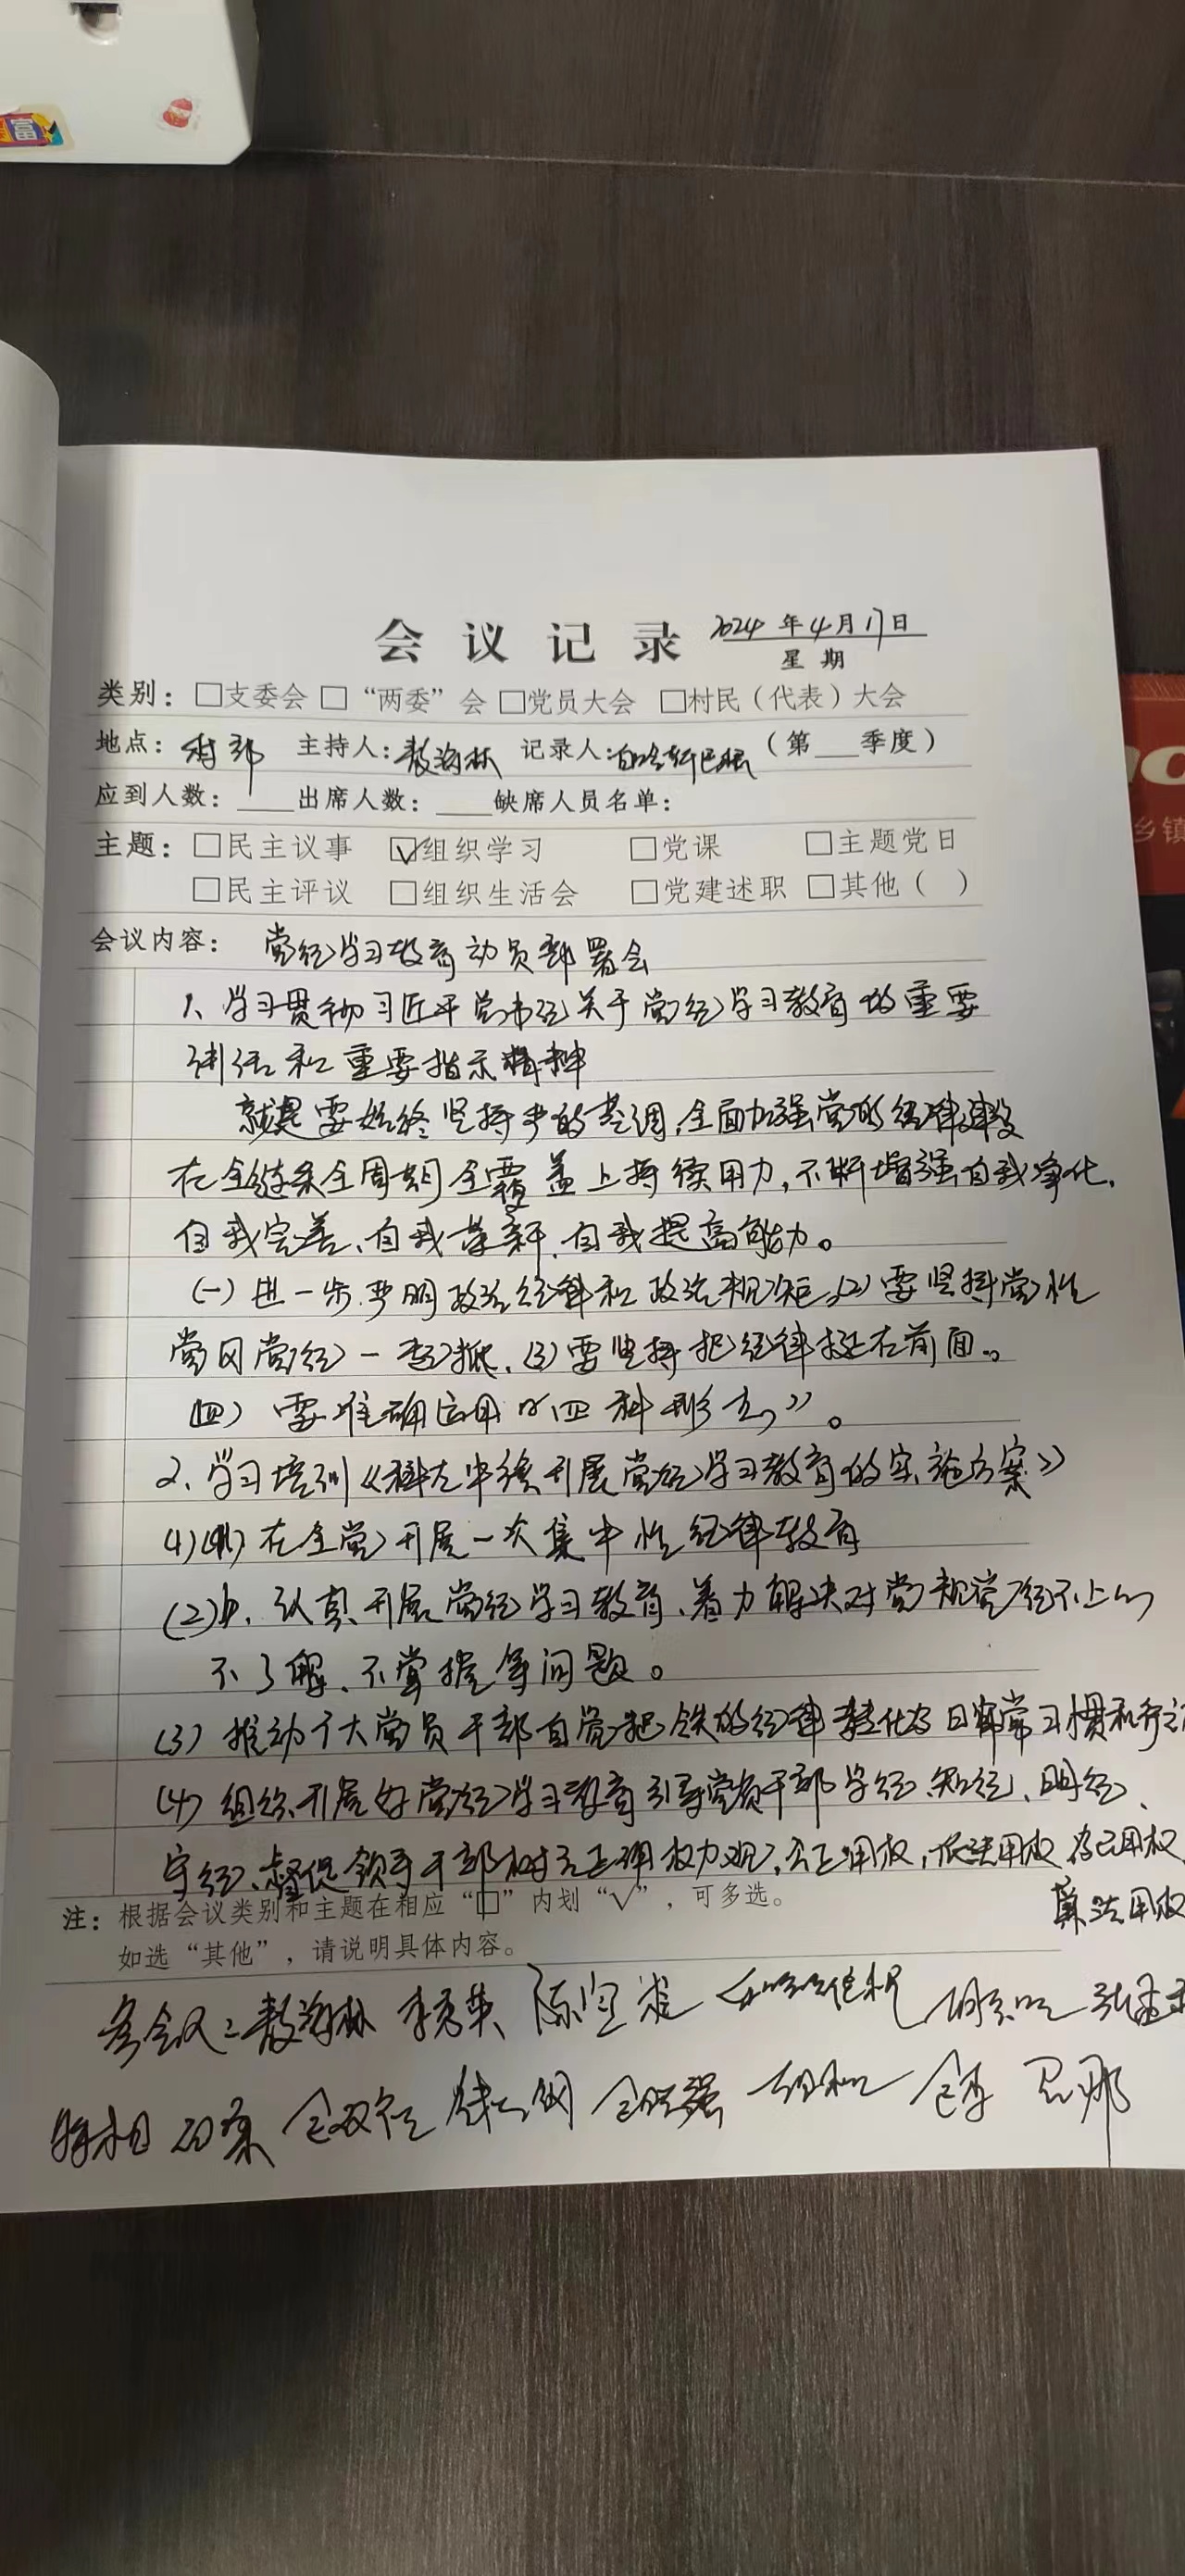 富
会议记录 2024年4月17日
星期
类别：□支委会 □“两委”会 □党员大会 □村民（代表）大会
地点：村部 主持人：敖海林 记录人： （第___季度）
应到人数：____出席人数：____缺席人员名单：
主题：□民主议事 ☑组织学习 □党课 □主题党日
□民主评议 □组织生活会 □党建述职 □其他（ ）
会议内容： 党纪学习教育动员部署会
1、学习贯彻习近平总书记关于党纪学习教育的重要
讲话和重要指示精神
就是要始终坚持严的基调，全面加强党的纪律建设
在全链条全周期全覆盖上持续用力，不断增强自我净化，
自我完善、自我革新、自我提高能力。
(一) 进一步严明政治纪律和政治规矩，(2) 要坚持党性
党风党纪一起抓，(3) 要坚持把纪律挺在前面。
(四) 要准确运用“四种形态”。
2、学习培训《科左中旗开展党纪学习教育的实施方案》
(1) 在全党开展一次集中性纪律教育
(2) 认真开展党纪学习教育、着力解决对党规党纪不上心
不了解、不掌握等问题。
(3) 推动广大党员干部自觉把铁的纪律转化为日常习惯和
(4) 组织开展好党纪学习教育引导党员干部学纪、知纪、明纪、
守纪、督促领导干部树立正确权力观，公正用权，依法用权 为民用权
用权
注：根据会议类别和主题在相应“□”内划“√”，可多选。
如选“其他”，请说明具体内容。
参会人：敖海林 李秀英 陈宝
乡镇